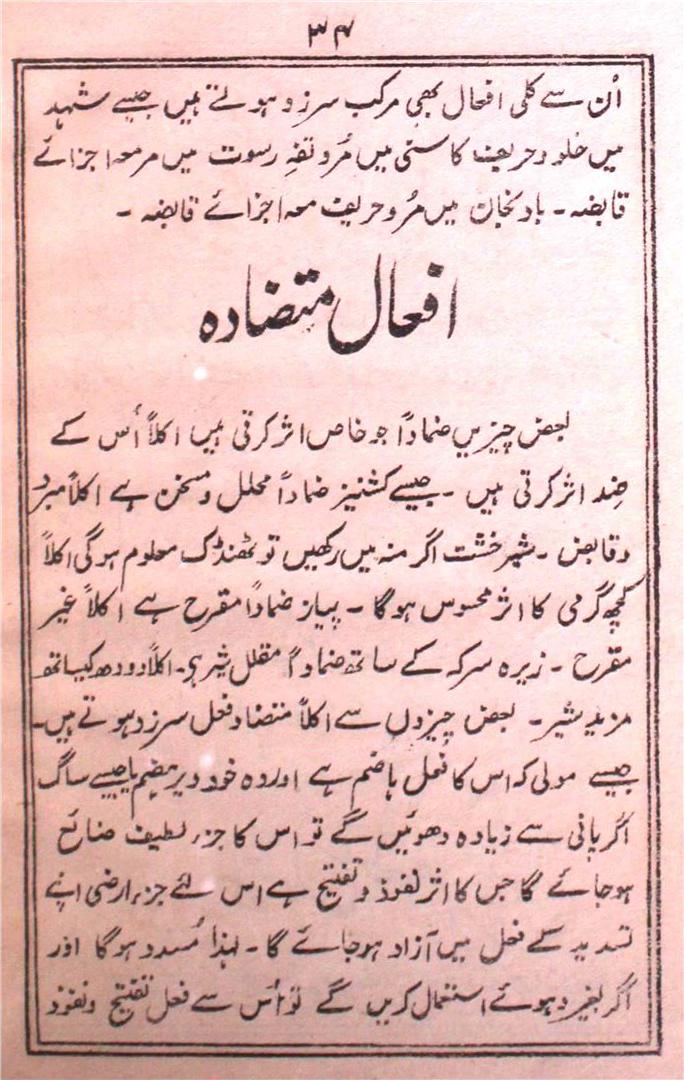 ۳۴
اُن سے کلی افعال بھی مرکب سرزد ہوتے ہیں جیسے شہد
میں حلو و حریف کاسنی میں مُر و تفہِ رسوت میں مر معہ اجزائے
قابضہ ۔ بادنجان میں مُر و حریف معہ اجزائے قابضہ ۔
افعال متضادہ
بعض چیزیں ضماداً جو خاص اثر کرتی ہیں اکلاً اُس کے
ضِد اثر کرتی ہیں ۔ جیسے کشنیز ضماداً محلل و مسخن ہے اکلاً مبرد
و قابض ۔ شیر خشت اگر منہ میں رکھیں تو ٹھنڈک معلوم ہوگی اکلاً
کچھ گرمی کا اثر محسوس ہوگا ۔ پیاز ضماداً مقرح ہے اکلاً غیر
مقرح ۔ زیرہ سرکہ کے ساتھ ضماداً مقلل شیر ہے ۔ اکلاً دودھ کیساتھ
مزید شیر ۔ بعض چیزوں سے اکلاً متضاد فعل سرزد ہوتے ہیں ۔
جیسے مولی کہ اس کا فعل ہاضم ہے اور وہ خود دیر ہضم یا جیسے ساگ
اگر پانی سے زیادہ دھوئیں گے تو اس کا جزء لطیف ضائع
ہو جائے گا جس کا اثر نفوذ و تفتیح ہے اس لئے جزء ارضی اپنے
تسدید کے فعل میں آزاد ہو جائے گا ۔ لہٰذا مُسدد ہوگا اور
اگر بغیر دہوئے استعمال کریں گے تو اُس سے فعل تفتیح و نفوذ